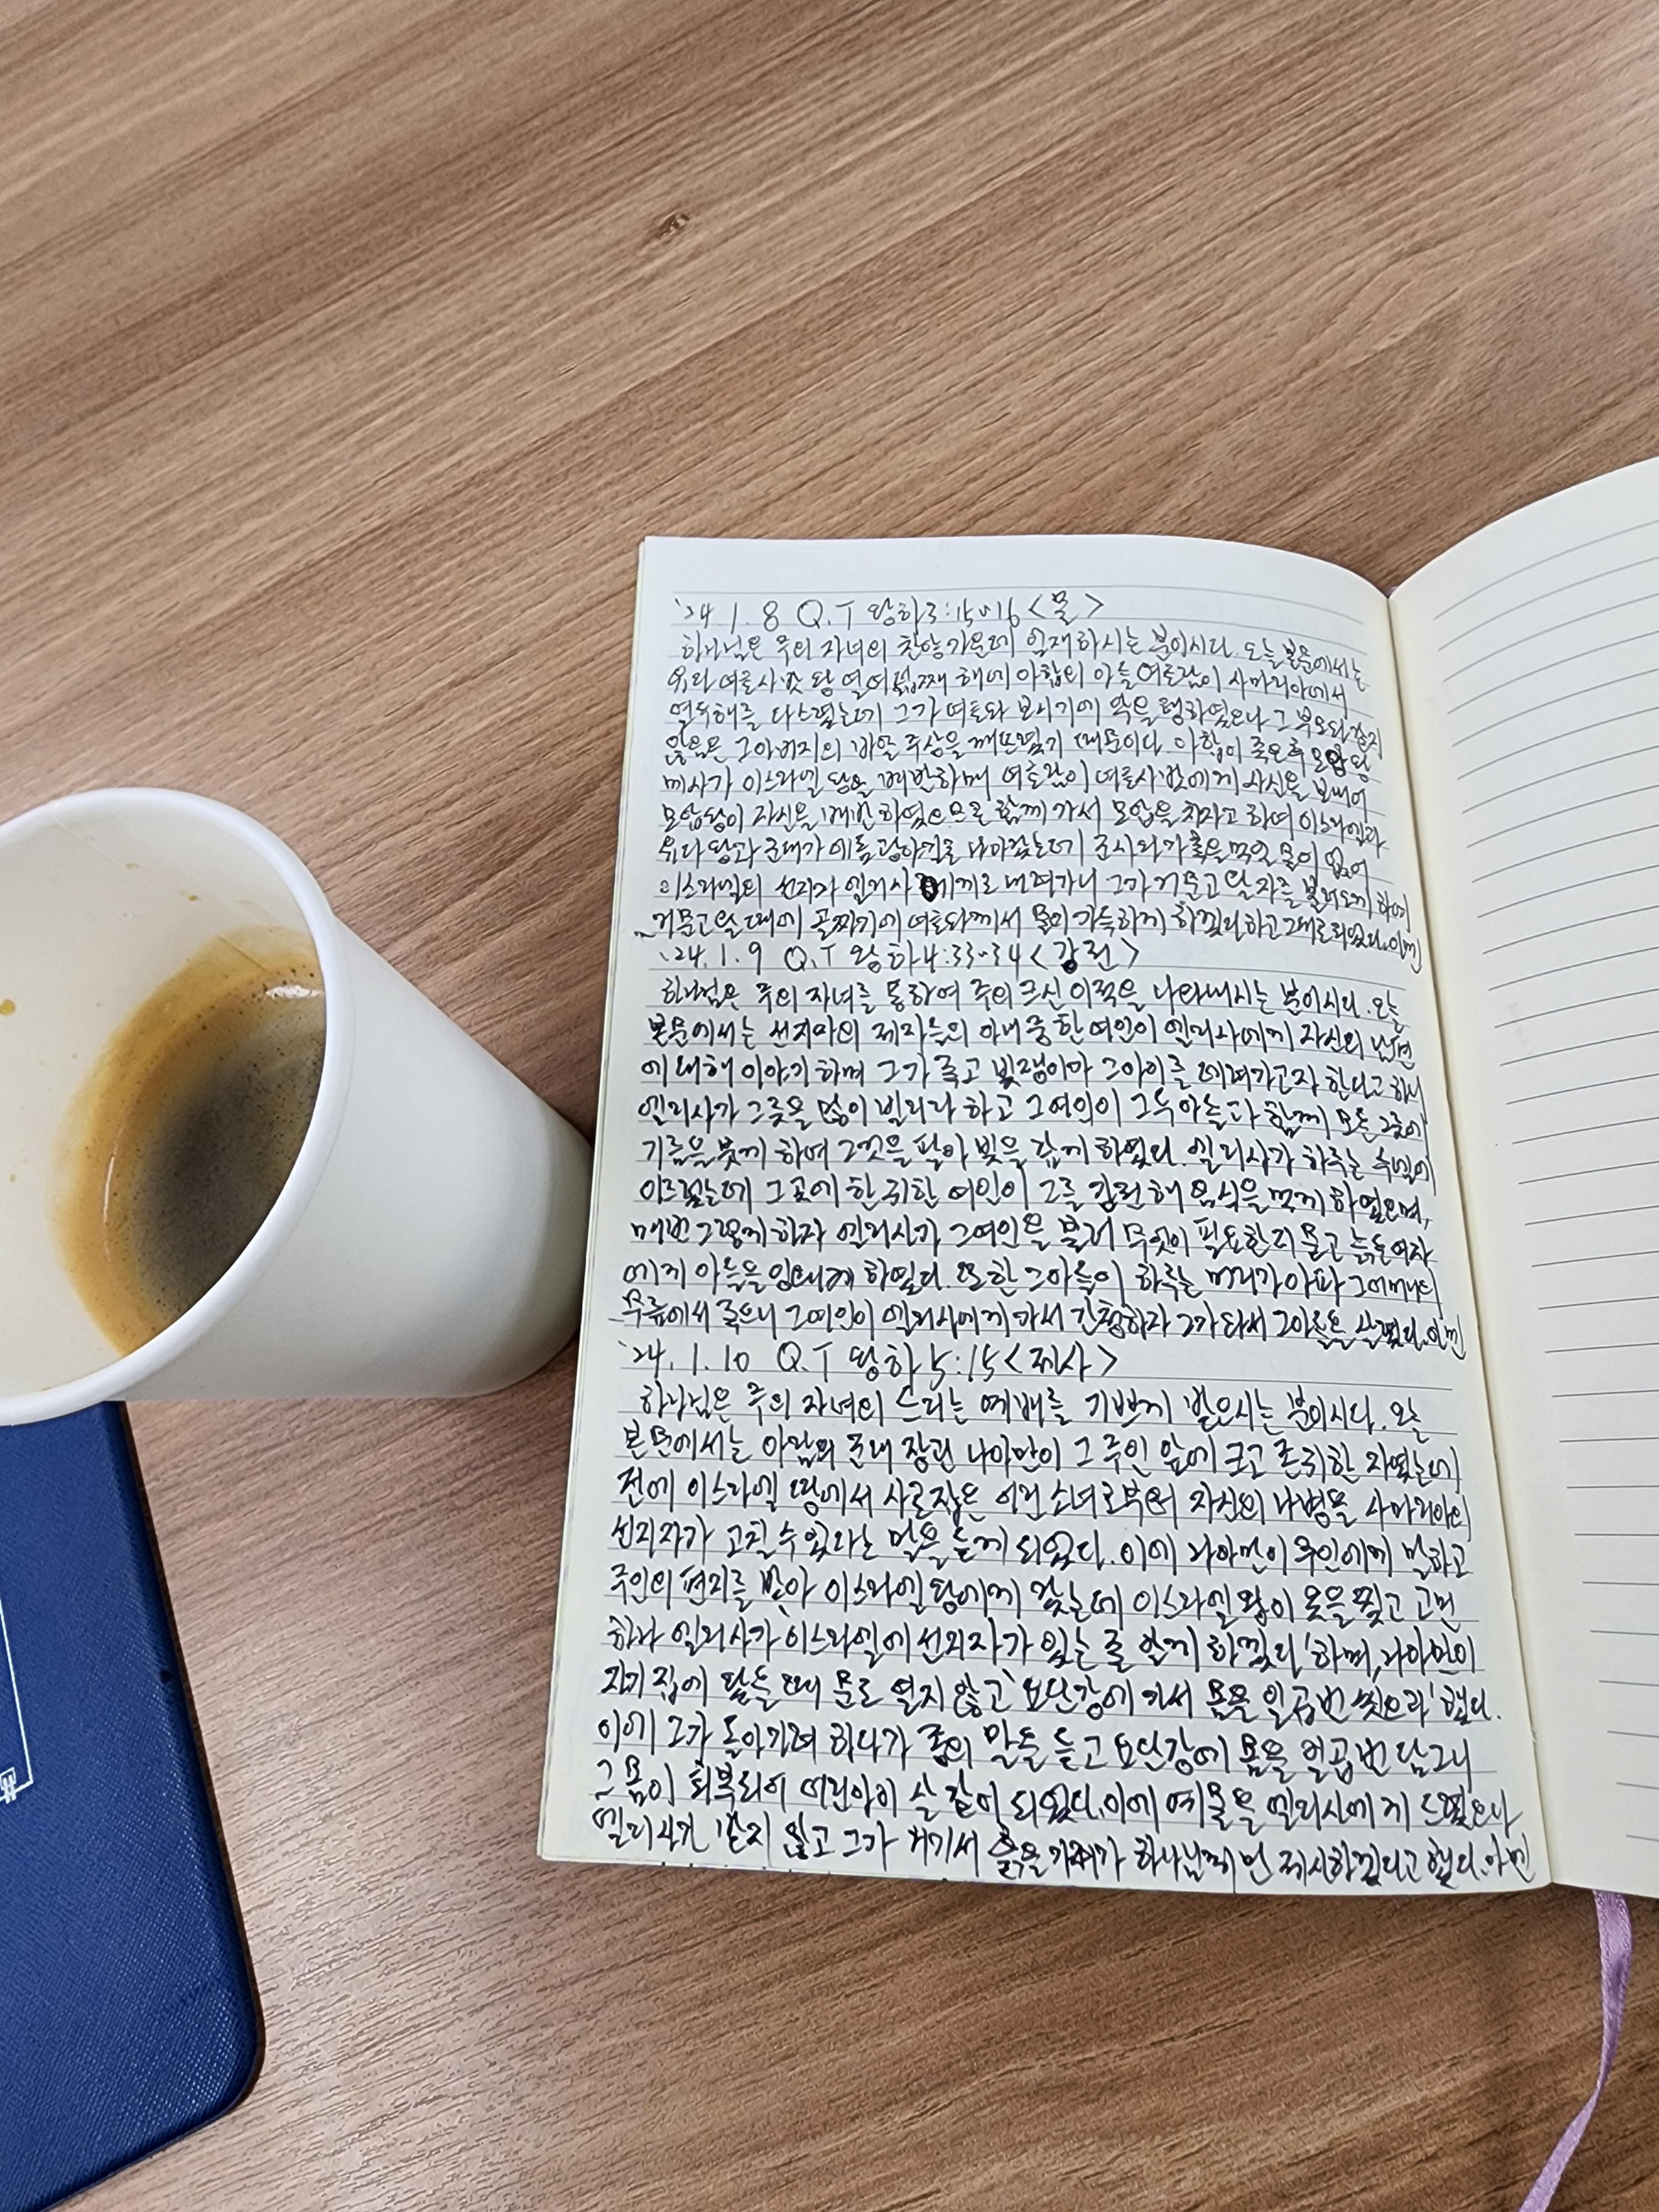 '24. 1. 8 Q.T 왕하3:15~16 <물>
하나님은 주의 자녀의 찬양가운데 임재하시는 분이시다. 오늘 본문에서는
유다 여호사밧 왕 열여덟째 해에 아합의 아들 여호람이 사마리아에서
열두해를 다스렸는데 그가 여호와 보시기에 악을 행하였으나 그 부모와 같지
않음은 그아버지의 바알 주상을 깨뜨렸기 때문이다. 아합이 죽은후 모압 왕
메사가 이스라엘 왕을 배반하매 여호람이 여호사밧에게 사신을 보내어
모압왕이 자신을 배반하였으므로 함께 가서 모압을 치자고 하여 이스라엘과
유다 왕과 군대가 에돔 광야길로 나아갔는데 군사와 가축을 먹일 물이 없어
이스라엘의 선지자 엘리사에게로 내려가니 그가 거문고 탈 자를 불러오게 하여
거문고 탈 때에 골짜기에 여호와께서 물이 가득하게 하겠다 하고 그대로 되었다. 아멘
'24. 1. 9 Q.T 왕하4:33-34 <강권>
하나님은 주의 자녀를 통하여 주의 크신 이적을 나타내시는 분이시다. 오늘
본문에서는 선지자의 제자들의 아내 중 한 여인이 엘리사에게 자신의 남편
에 대해 이야기 하며 그가 죽고 빚쟁이가 그아이를 데려가고자 한다고 하니
엘리사가 그릇을 많이 빌리라 하고 그여인이 그 두 아들과 함께 모든 그릇에
기름을 붓게 하여 그것을 팔아 빚을 갚게 하였다. 엘리사가 하루는 수넴에
이르렀는데 그 곳에 한 귀한 여인이 그를 강권해 음식을 먹게 하였으며,
매번 그렇게 하자 엘리사가 그여인을 불러 무엇이 필요한지 묻고 늙은여자
에게 아들을 잉태케 하였다. 또한 그아들이 하루는 머리가 아파 그어머니의
무릎에서 죽으니 그여인이 엘리사에게 가서 간청하자 그가 와서 그아들을 살렸다. 아멘
'24. 1. 10 Q.T 왕하 5:15 <제사>
하나님은 주의 자녀의 드리는 예배를 기쁘게 받으시는 분이시다. 오늘
본문에서는 아람의 군대 장관 나아만이 그 주인 앞에 크고 존귀한 자였는데
전에 이스라엘 땅에서 사로잡은 어린 소녀로부터 자신의 나병을 사마리아의
선지자가 고칠 수 있다는 말을 듣게 되었다. 이에 나아만이 주인에게 말하고
주인의 편지를 받아 이스라엘 왕에게 갔는데 이스라엘 왕이 옷을 찢고 고민
하자 엘리사가 이스라엘에 선지자가 있는 줄 알게 하겠다' 하며, 나아만이
자기 집에 닿을 때 문도 열지 않고 '요단강에 가서 몸을 일곱번 씻으라' 했다.
이에 그가 돌아가려 하다가 종의 말을 듣고 요단강에 몸을 일곱 번 담그니
그 몸이 회복되어 어린아이 살 같이 되었다. 이에 예물을 엘리사에게 드렸으나
엘리사가 받지 않고 그가 거기서 흙을 가져가 하나님께만 제사하겠다고 했다. 아멘